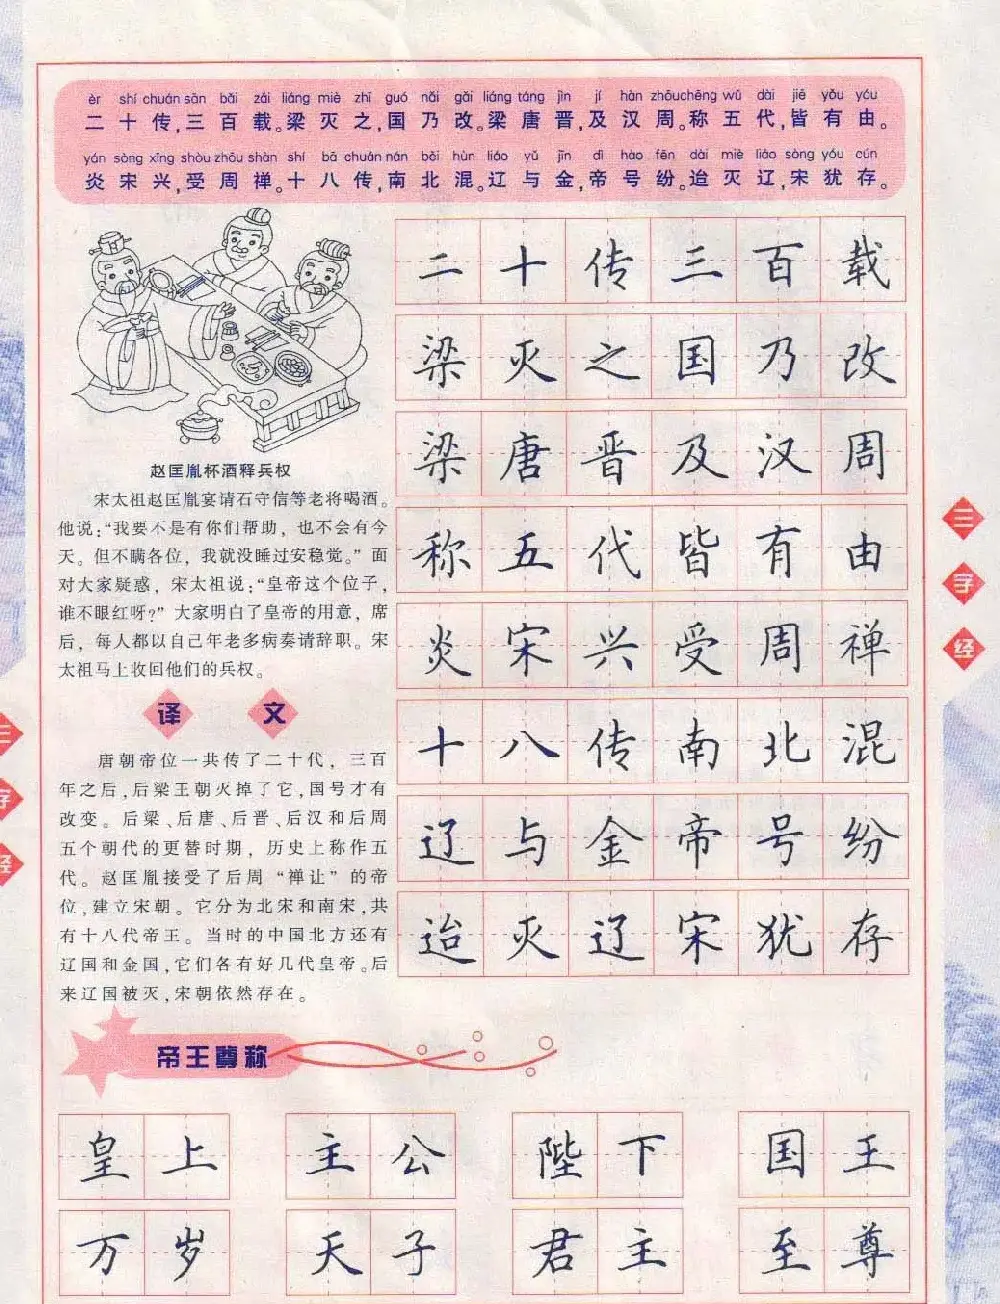 èr shí chuán sān bǎi zǎi liáng miè zhī guó nǎi gǎi liáng táng jìn jí hàn zhōu chēng wǔ dài jiē yǒu yóu
二十传,三百载。梁灭之,国乃改。梁唐晋,及汉周。称五代,皆有由。
yán sòng xīng shòu zhōu shàn shí bā chuán nán běi hùn liáo yǔ jīn dì hào fēn dài miè liáo sòng yóu cún
炎宋兴,受周禅。十八传,南北混。辽与金,帝号纷。迨灭辽,宋犹存。
二十传三百载
梁灭之国乃改
梁唐晋及汉周
称五代皆有由
炎宋兴受周禅
十八传南北混
辽与金帝号纷
迨灭辽宋犹存
赵匡胤杯酒释兵权
宋太祖赵匡胤宴请石守信等老将喝酒。
他说:“我要不是有你们帮助，也不会有今
天。但不瞒各位，我就没睡过安稳觉。”面
对大家疑惑，宋太祖说:“皇帝这个位子,
谁不眼红呀?”大家明白了皇帝的用意，席
后，每人都以自己年老多病奏请辞职。宋
太祖马上收回他们的兵权。
译文
唐朝帝位一共传了二十代，三百
年之后,后梁王朝灭掉了它,国号才有
改变。后梁、后唐、后晋、后汉和后周
五个朝代的更替时期，历史上称作五
代。赵匡胤接受了后周“禅让”的帝
位,建立宋朝。它分为北宋和南宋,共
有十八代帝王。当时的中国北方还有
辽国和金国,它们各有好几代皇帝。后
来辽国被灭,宋朝依然存在。
帝王尊称
皇上 主公 陛下 国王
万岁 天子 君主 至尊
三字经
三字经